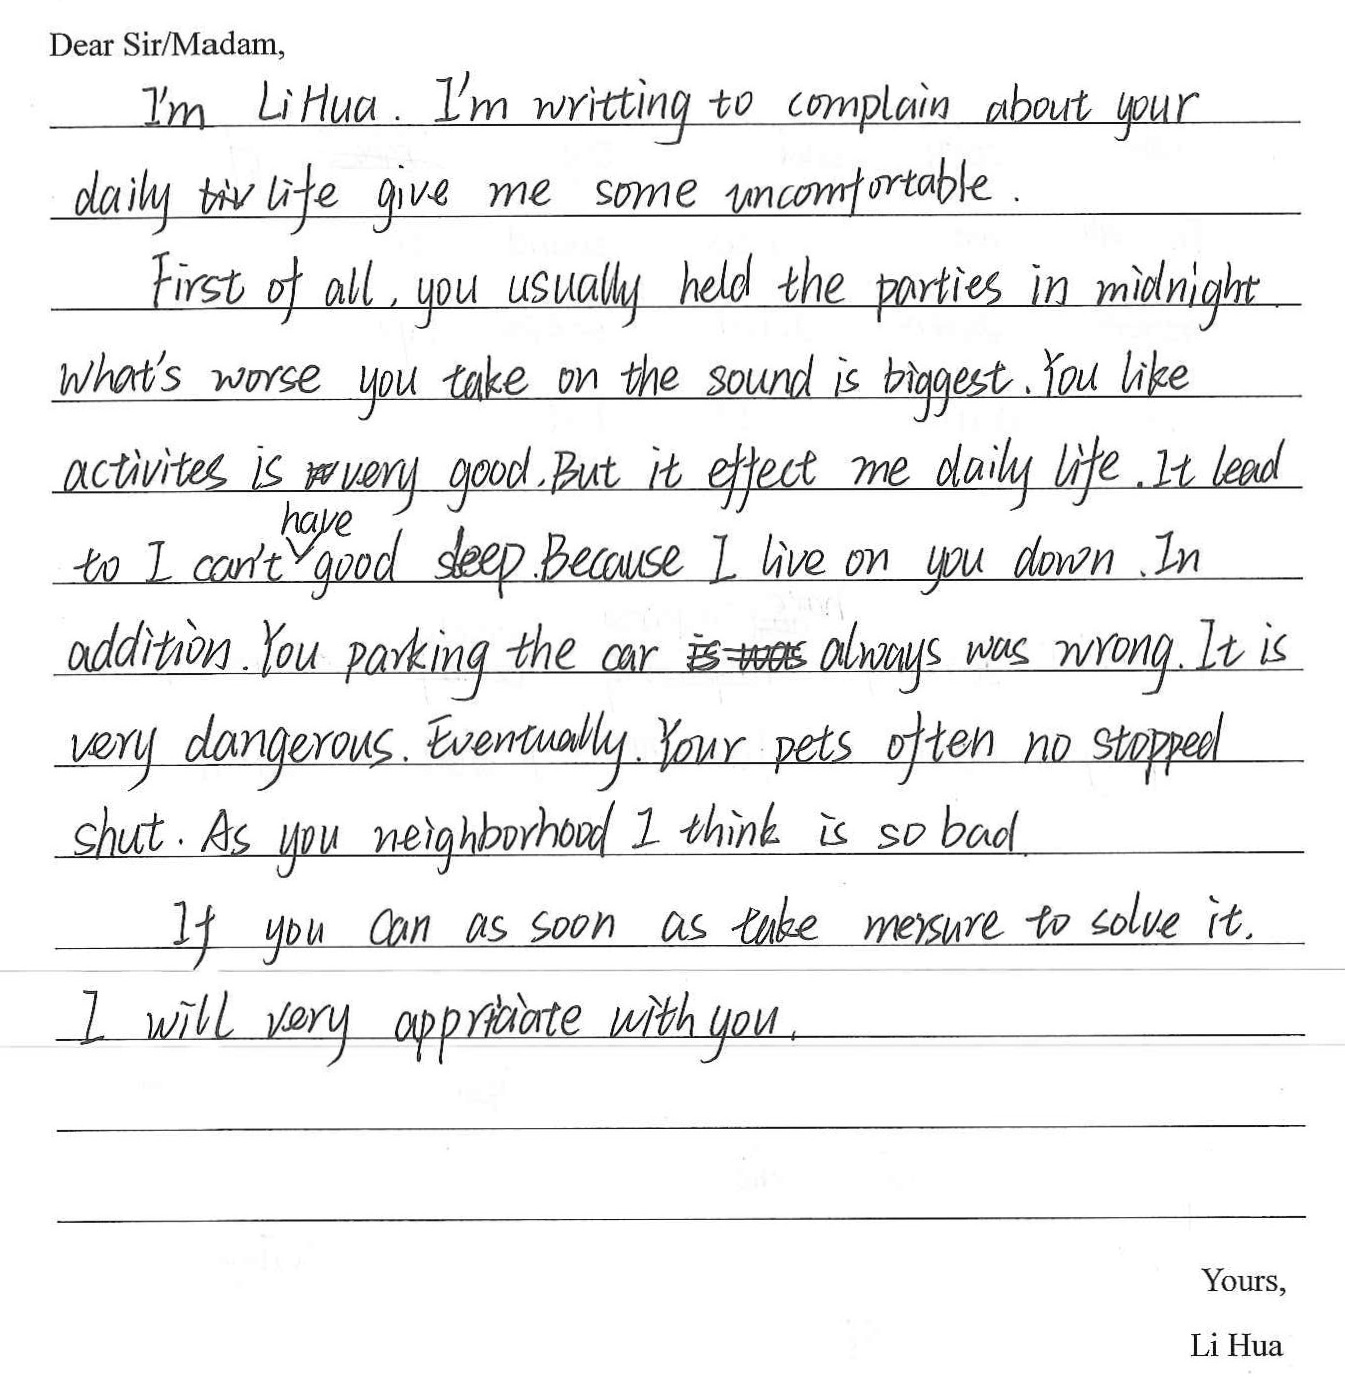 Dear Sir/Madam,
I'm Li Hua. I'm writting to complain about your
daily life give me some uncomfortable.
First of all, you usually held the parties in midnight.
What's worse you take on the sound is biggest. You like
activites is very good. But it effect me daily life. It lead
to I can't have good sleep. Because I live on you down. In
addition. You parking the car always was wrong. It is
very dangerous. Eventually. Your pets often no stopped
shut. As you neighborhood I think is so bad
If you can as soon as take mersure to solve it.
I will very appriciate with you.
Yours,
Li Hua